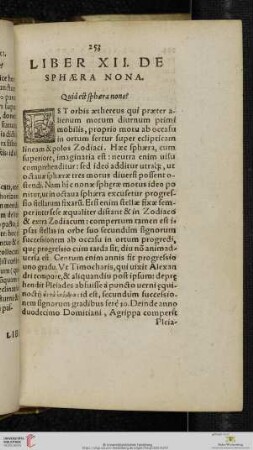 253
LIBER XII. DE
SPHÆRA NONA.
Quid est sphæra nona?
EST orbis æthereus qui præter a-
lienum motum diurnum primi
mobilis, proprio motu ab occasu
in ortum fertur super eclipticam
lineam & polos Zodiaci. Hæc sphæra, cum
superiore, imaginaria est: neutra enim visu
comprehenditur: sed ideo additur utraque, ut
octauæ sphæræ tres motus diuersi possent o-
stendi. Nam hic nonæ sphæræ motus ideo po-
nitur, ut in octaua sphæra excusetur progres-
sio stellarum fixarũ. Etsi enim stellæ fixæ sem-
per inter sese æqualiter distare & in Zodiaco
& extra Zodiacum: compertum tamen est i-
psas stellas in orbe suo secundum signorum
successionem ab occasu in ortum progredi,
quæ progressio cum tarda sit, diu nõ animad-
uersa est. Centum enim annis fit progressio
uno gradu. Ut Timocharis, qui uixit Alexan
dri tempore, & aliquandiu post ipsum: depre
hendit Pleiades abfuisse à puncto uerni equi-
noctii
id est, secundum successio-
nem signorum gradibus ferè 30. Deinde anno
duodecimo Domitiani, Agrippa comperit
Pleia-